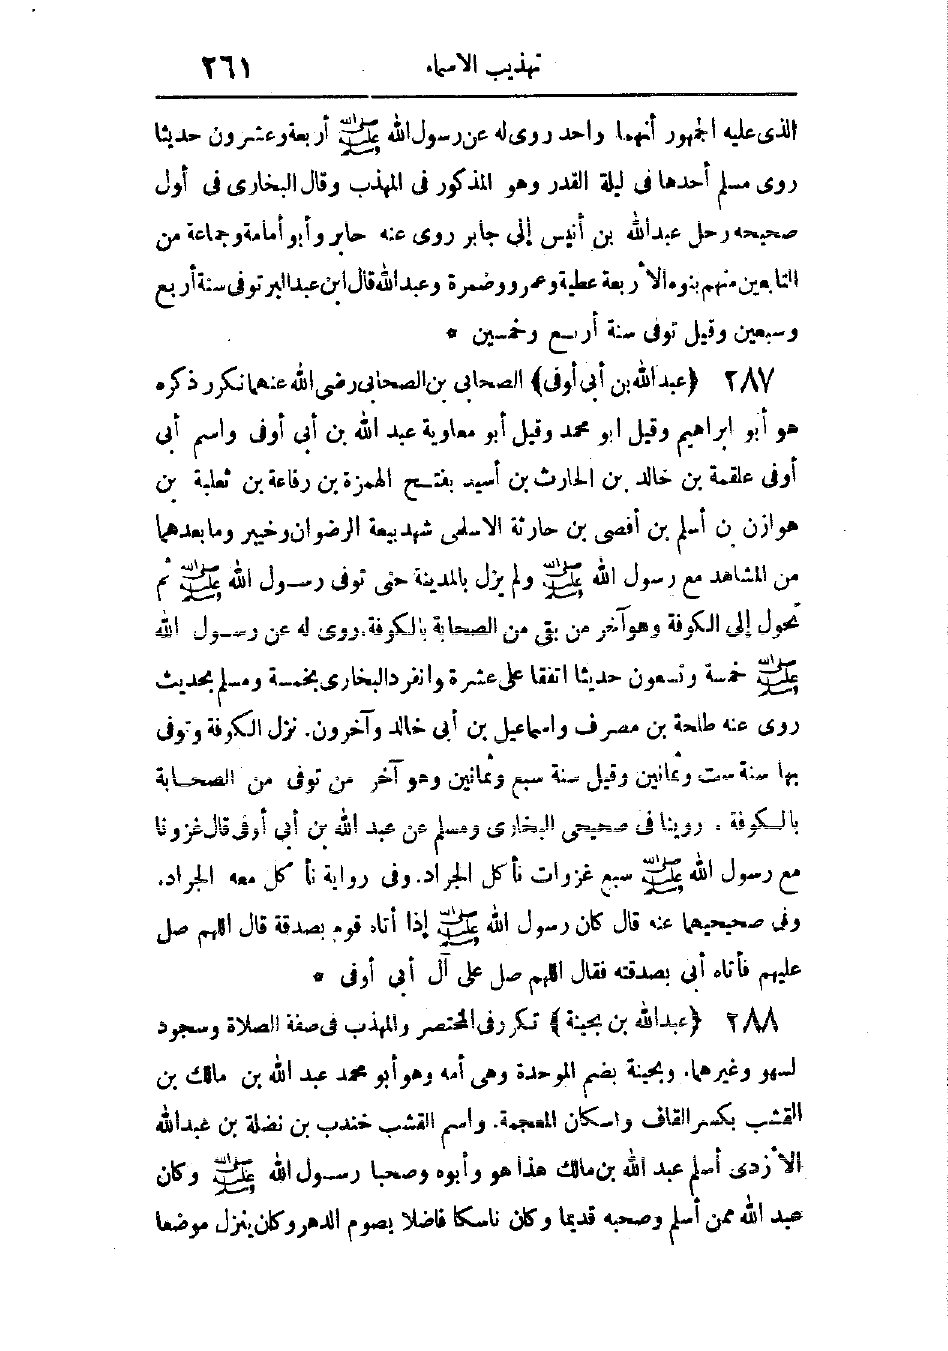 تهذيب الاسماء ٢٦١
الذى عليه الجمهور أنهما واحد روى له عن رسول الله ﷺ أربعة وعشرون حديثا
روى مسلم أحدها فى ليلة القدر وهو المذكور فى المهذب وقال البخارى فى أول
صحيحه رحل عبدالله بن أنيس إلى جابر روى عنه جابر وأبو أمامة وجماعة من
التابعين منهم بنوه الأربعة عطية وعمرو وضمرة وعبدالله قال ابن عبدالبر توفى سنة أربع
وسبعين وقيل توفى سنة أربع وخمسين *
٢٨٧ (عبدالله بن أبى أوفى) الصحابى بن الصحابى رضى الله عنهما تكرر ذكره
هو أبو ابراهيم وقيل ابو محمد وقيل أبو معاوية عبد الله بن أبى أوفى واسم أبى
أوفى علقمة بن خالد بن الحارث بن أسيد بفتح الهمزة بن رفاعة بن ثعلبة بن
هوازن بن أسلم بن أفصى بن حارثة الاسلمى شهد بيعة الرضوان وخيبر وما بعدهما
من المشاهد مع رسول الله ﷺ ولم يزل بالمدينة حتى توفى رسول الله ﷺ ثم
تحول إلى الكوفة وهو آخر من بقى من الصحابة بالكوفة. روى له عن رسول الله
ﷺ خمسة وتسعون حديثا اتفقا على عشرة وانفرد البخارى بخمسة ومسلم بحديث
روى عنه طلحة بن مصرف واسماعيل بن أبى خالد وآخرون. نزل الكوفة وتوفى
بها سنة ست وثمانين وقيل سنة سبع وثمانين وهو آخر من توفى من الصحابة
بالكوفة. روينا فى صحيحى البخارى ومسلم عن عبد الله بن أبى أوفى قال غزونا
مع رسول الله ﷺ سبع غزوات نأكل الجراد. وفى رواية نأكل معه الجراد.
وفى صحيحيهما عنه قال كان رسول الله ﷺ إذا أتاه قوم بصدقة قال اللهم صل
عليهم فأتاه أبى بصدقته فقال اللهم صل على آل أبى أوفى *
٢٨٨ (عبدالله بن بحينة) تكرر فى المختصر والمهذب فى صفة الصلاة وسجود
لسهو وغيرهما. وبحينة بضم الموحدة وهى أمه وهو أبو محمد عبد الله بن مالك بن
القشب بكسر القاف واسكان المعجمة. واسم القشب خندب بن نضلة بن عبدالله
الأزدى أسلم عبد الله بن مالك هذا هو وأبوه وصحبا رسول الله ﷺ وكان
عبد الله ممن أسلم وصحبه قديما وكان ناسكا فاضلا يصوم الدهر وكان ينزل موضعا